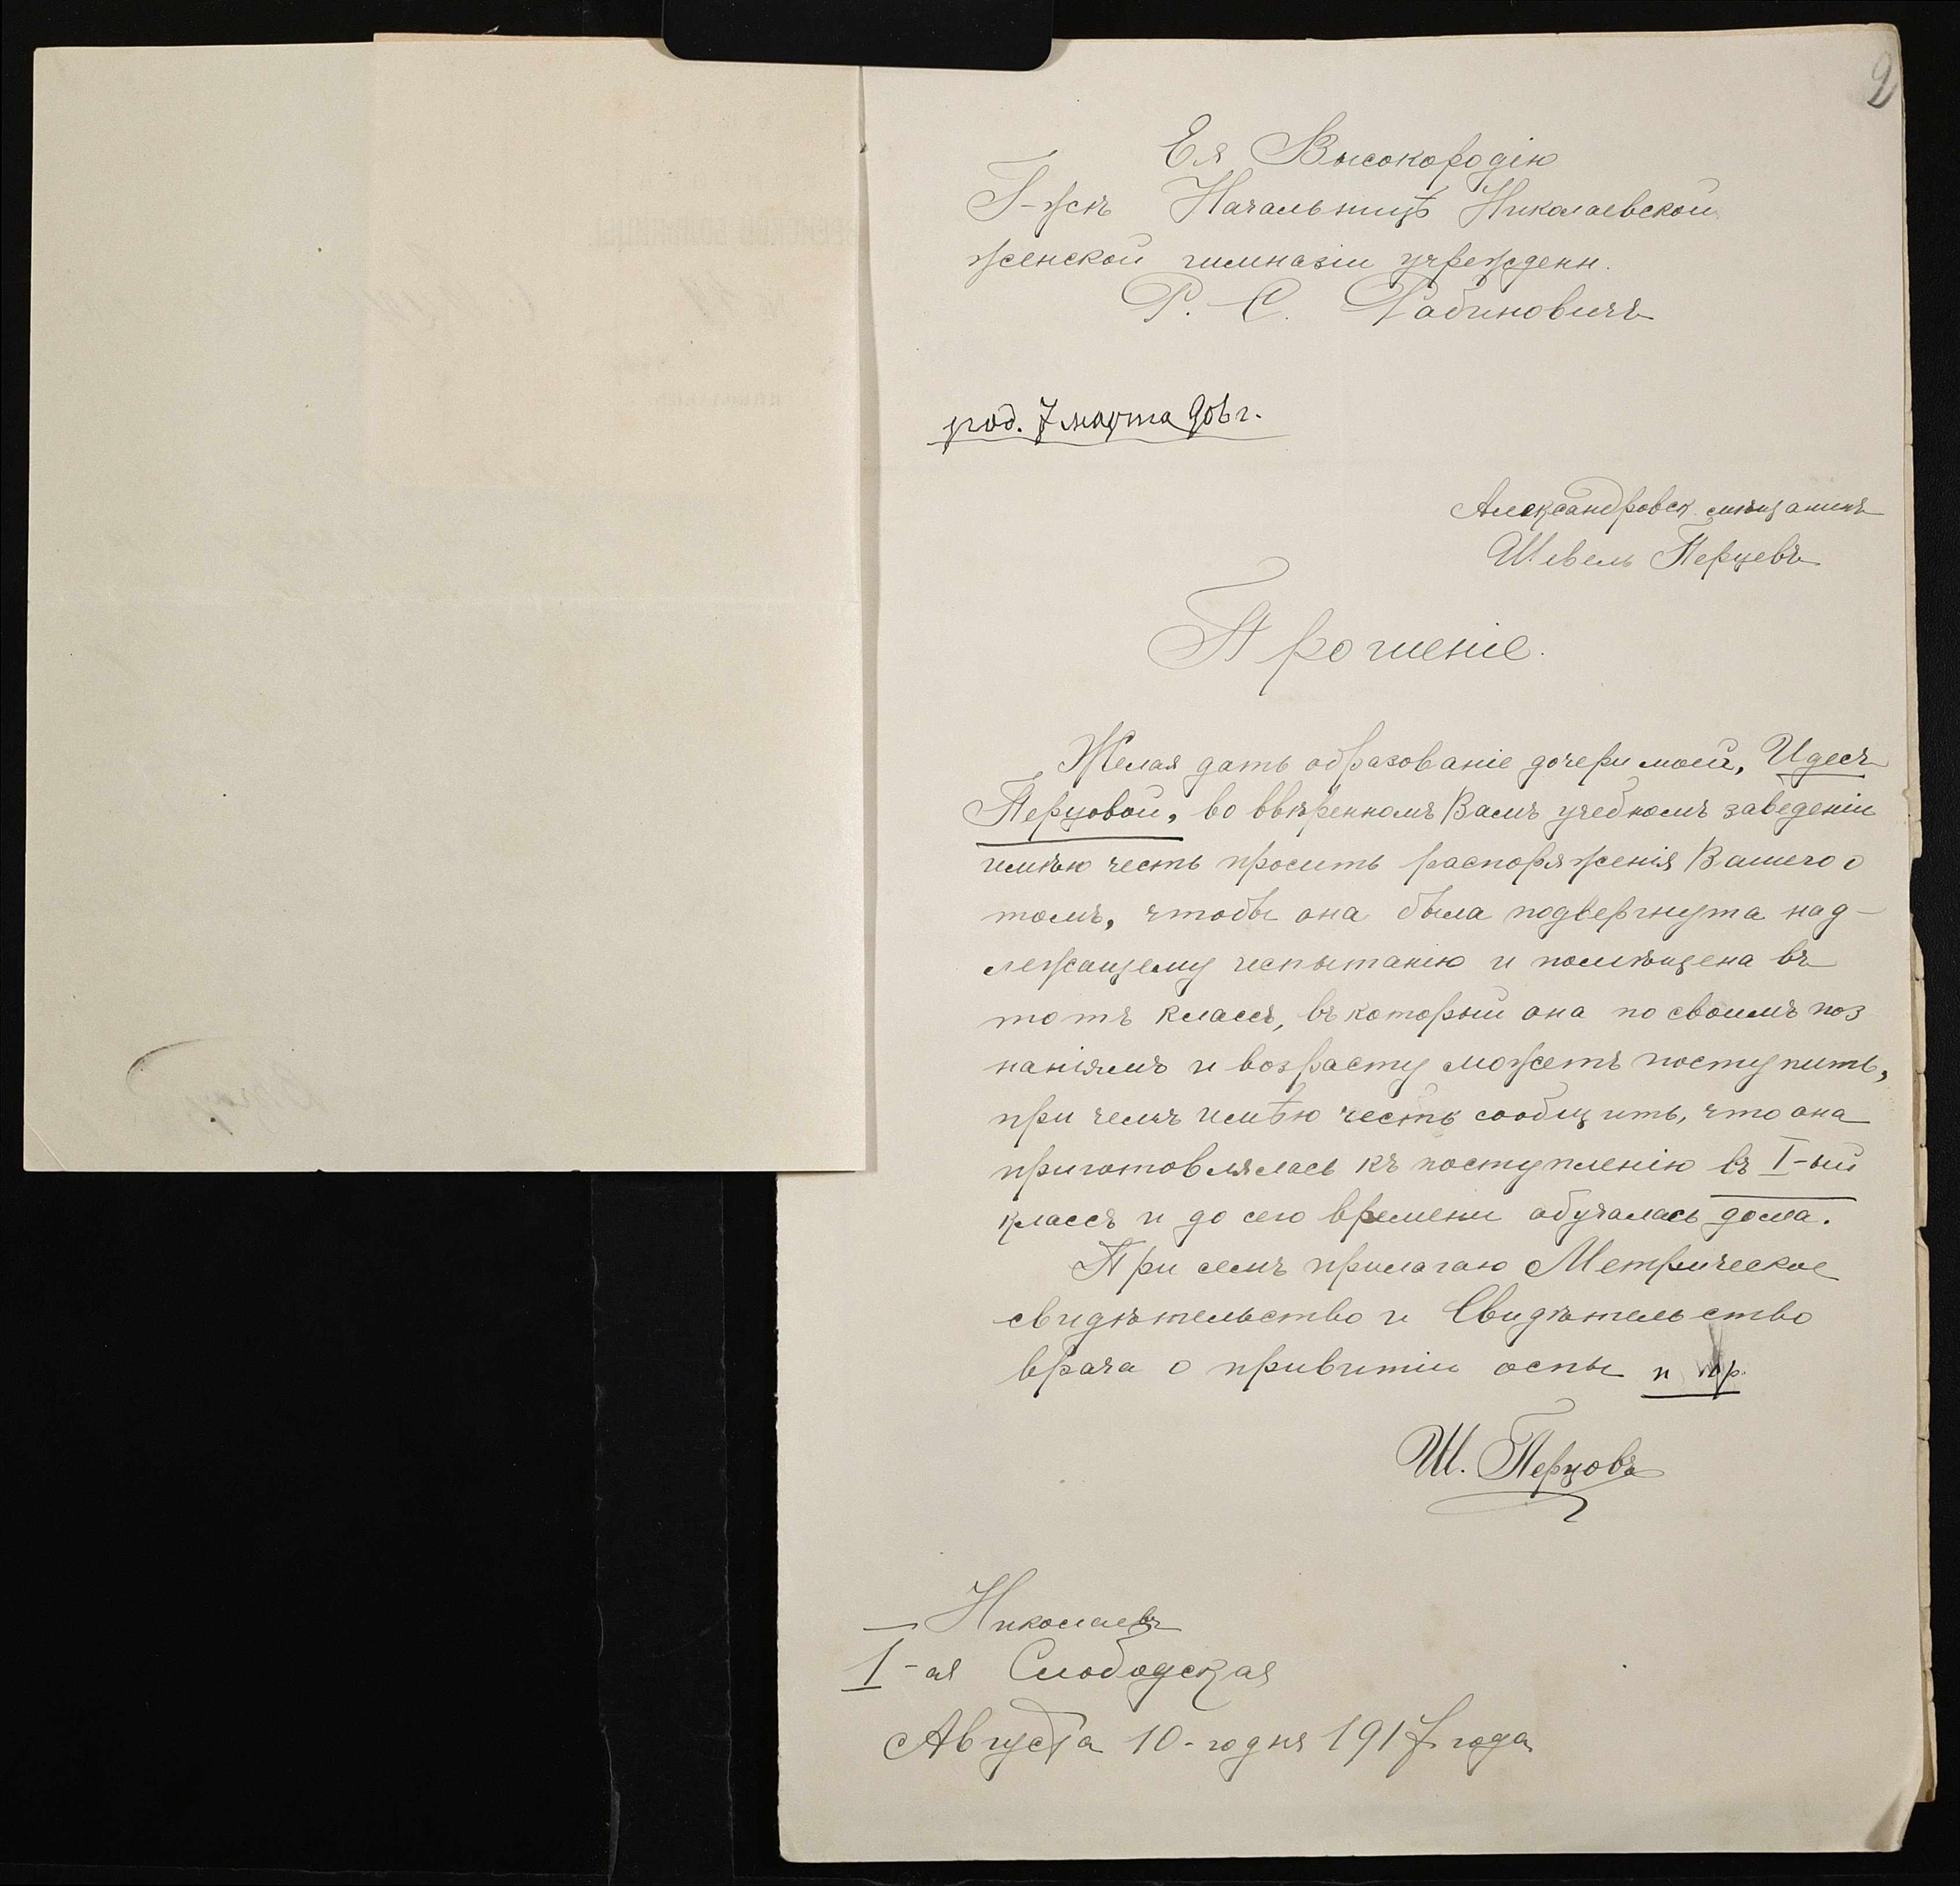 2
Ея Высокородію
Г-жѣ Начальницѣ Николаевской
женской гимназіи учрежденн.
Р. С. Рабиновичъ
род. 7 марта 906 г.
Александровск. мѣщанинъ
Шевель Перцевъ
Прошеніе.
Желая дать образованіе дочери моей, Идесѣ
Перцовой, во ввѣренномъ Вамъ учебномъ заведеніи
имѣю честь просить распоряженія Вашего о
томъ, чтобы она была подвергнута над-
лежащему испытанію и помѣщена въ
тотъ классъ, въ который она по своимъ поз
наніямъ и возрасту можетъ поступить,
при чемъ имѣю честь сообщить, что она
приготовлялась къ поступленію въ I-ый
классъ и до сего времени обучалась дома.
При семъ прилагаю Метрическое
свидѣтельство и Свидѣтельство
врача о привитіи оспы и пр.
Ш. Перцовъ
Николаевъ
1-ая Слободская
Августа 10-го дня 1917 года